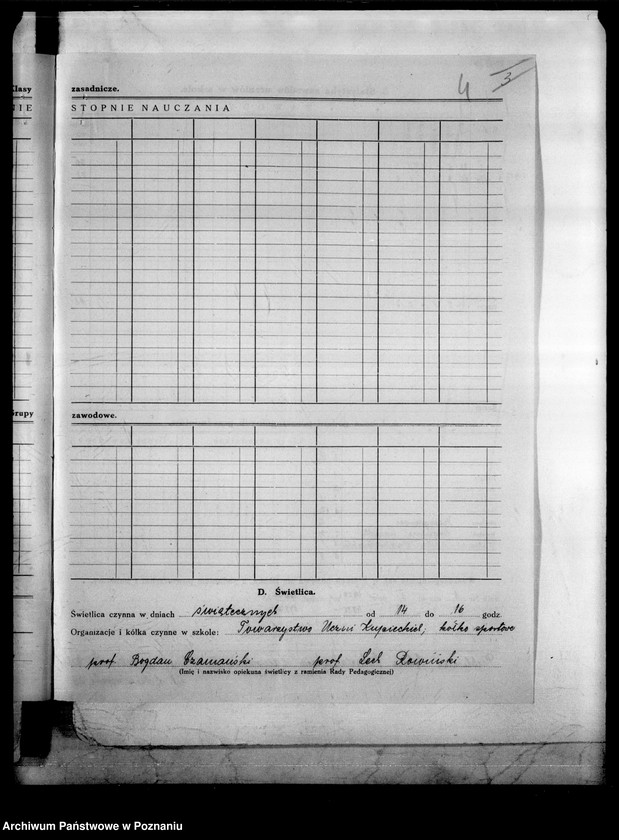 4 3
Klasy zasadnicze.
STOPNIE NAUCZANIA
Grupy zawodowe.
D. Świetlica.
Świetlica czynna w dniach świątecznych od 14 do 16 godz.
Organizacje i kółka czynne w szkole: Towarzystwo Uczni Kupieckich, kółko sportowe
prof. Bogdan Czamański prof. Lech
(Imię i nazwisko opiekuna świetlicy z ramienia Rady Pedagogicznej)
Archiwum Państwowe w Poznaniu